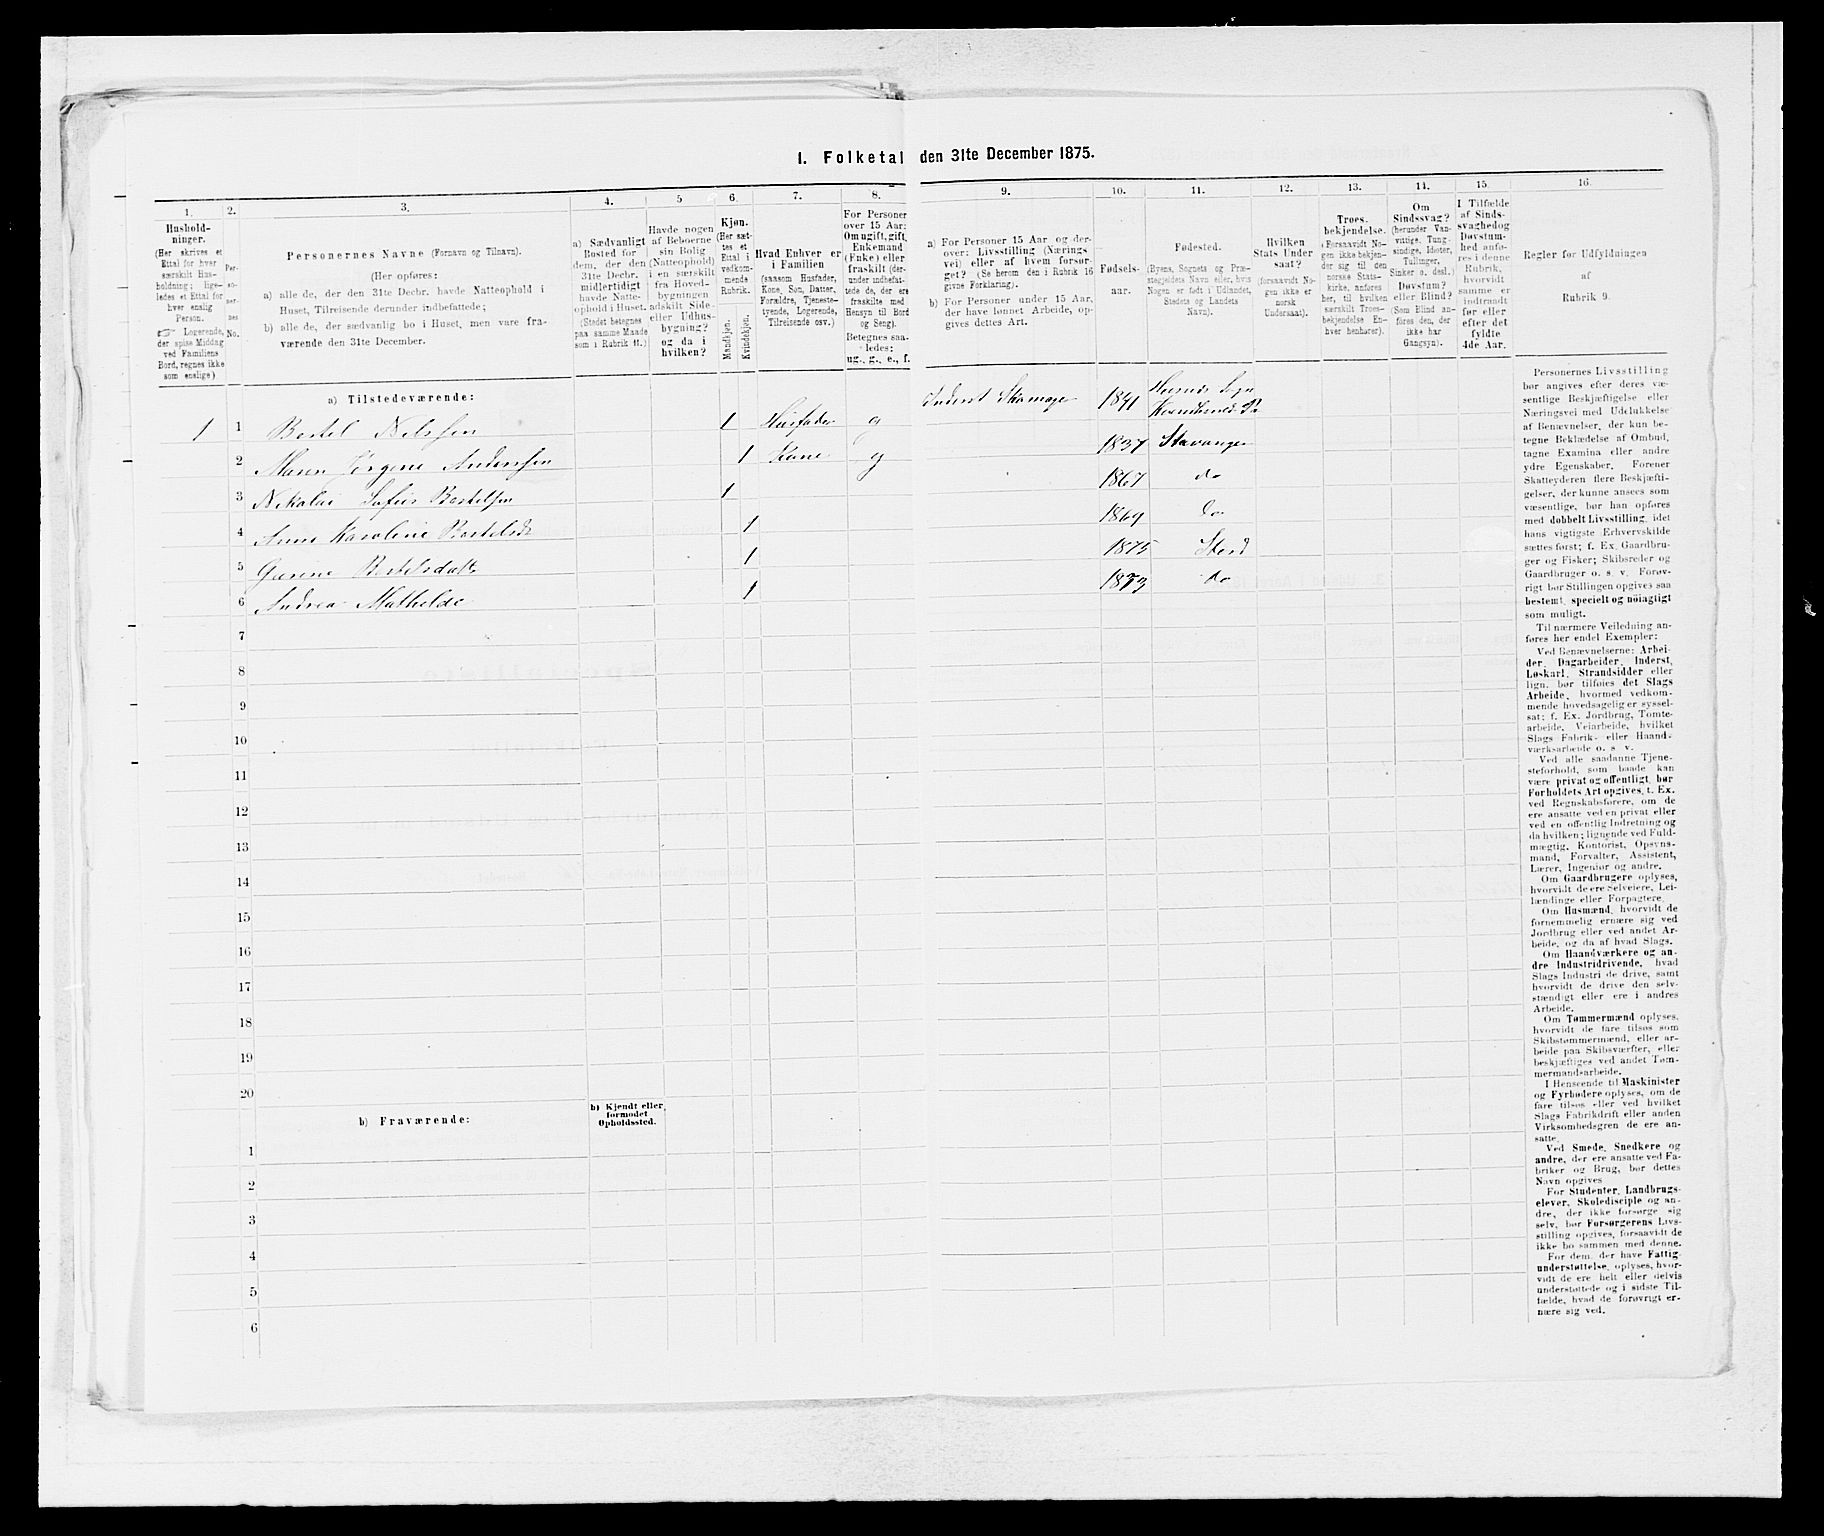 I. Folketal den 31te December 1875.
1. 2. 3. 4. 5 6. 7. 8. 9. 10. 11. 12. 13. 14. 15. 16.
Hushold-
ninger.
(Her skrives et
Ettal for hver
særskilt Hus-
holdning; lige-
ledes et Ettal for
hver enslig
Person.
☞ Logerende,
der spise Middag
ved Familiens
Bord, regnes ikke
som enslige)
Per-
so-
ner-
nes
No.
Personernes Navne (Fornavn og Tilnavn).
(Her opføres:
a) alle de, der den 31te Decbr. havde Natteophold i
Huset, Tilreisende derunder indbefattede;
b) alle de, der sædvanlig bo i Huset, men vare fra-
værende den 31te December.
a) Sædvanligt
Bosted for
dem, der den
31te Decbr.
midlertidigt
havde Natte-
ophold i Huset.
(Stedet betegnes
paa samme Maade
som i Rubrik 11.)
Havde nogen
af Beboerne
sin Bolig
(Natteophold)
i en særskilt
fra Hoved-
bygningen
adskilt Side-
eller Udhus-
bygning?
og da i
hvilken?
Kjøn.
(Her sæt-
tes et
Ettal i
vedkom-
mende
Rubrik.
Mandkjøn.
Kvindekjøn.
Hvad Enhver er
i Familien
(saasom Husfader,
Kone, Søn, Datter,
Forældre, Tjeneste-
tyende, Logerende,
Tilreisende osv.)
For Personer
over 15 Aar:
Om ugift, gift,
Enkemand
(Enke) eller
fraskilt (der-
under indbefat-
tede de, der ere
fraskilte med
Hensyn til Bord
og Seng).
Betegnes saa-
ledes:
ug., g., e., f.
a) For Personer 15 Aar og der-
over: Livsstilling (Nærings-
vei) eller af hvem forsør-
get? (Se herom den i Rubrik 16
givne Forklaring).
b) For Personer under 15 Aar,
der have lønnet Arbeide, op-
gives dettes Art.
Fødsels-
aar.
Fødested.
(Byens, Sognets og Præ-
stegjeldets Navn eller, hvis
Nogen er født i Udlandet,
Stedets og Landets
Navn).
Hvilken
Stats Under
saat?
(forsaavidt No-
gen ikke er
norsk
Undersaat).
Troes-
bekjendelse.
(Forsaavidt No-
gen ikke bekjen-
der sig til den
norske Stats-
kirke, anføres
her, til hvilken
særskilt Troes-
bekjendelse En-
hver henhører).
Om
Sindssvag?
(herunder Van-
vittige, Tung-
sindige, Idioter,
Tullinger,
Sinker o. desl.)
Døvstum?
eller Blind?
(Som Blind an-
føres den, der
ikke har
Gangsyn).
I Tilfælde
af Sinds-
svaghedog
Døvstum-
hed anfø-
res i denne
Rubrik,
hvorvidt
samme er
indtraadt
før eller
efter det
fyldte
4de Aar.
Regler for Udfyldningen
af
Rubrik 9.
a) Tilstedeværende:
1 1 Bertel Nilssen 1 Husfader g Inderst Skomager 1841 Sogn
2 Maren Jørgine Anderssen 1 Kone g 1837 Stavanger
3 Nikolai Bertelsen 1 1867 do
4 Anne Karoline Bertelsd 1 1869 do
5 Gurine Bertelsdatt 1 1875 Stord
6 Andrea Mathilde 1 1873 do
7
8
9
10
11
12
13
14
15
16
17
18
19
20
b) Fraværende:
b) Kjendt eller
formodet
Opholdssted.
1
2
3
4
5
6
Personernes Livsstilling
bør angives efter deres væ-
sentlige Beskjæftigelse eller
Næringsvei med Udelukkelse
af Benævnelser, der kun be-
tegne Beklædelse af Ombud,
tagne Examina eller andre
ydre Egenskaber. Forener
Skatteyderen flere Beskjæfti-
gelser, der kunne ansees som
væsentlige, bør han opføres
med dobbelt Livsstilling, idet
hans vigtigste Erhvervskilde
sættes først; f. Ex. Gaardbru-
ger og Fisker; Skibsreder og
Gaardbruger o. s. v. Forøv-
rigt bør Stillingen opgives saa
bestemt, specielt og nöiagtigt
som muligt.
Til nærmere Veiledning an-
føres her endel Exempler:
Ved Benævnelserne: Arbei-
der, Dagarbeider, Inderst,
Løskarl, Strandsidder eller
lign. bør tilføies det Slags
Arbeide, hvormed vedkom-
mende hovedsagelig er syssel-
sat; f. Ex. Jordbrug, Tomte-
arbeide, Veiarbeide, hvilket
Slags Fabrik- eller Haand-
værksarbeide o. s v.
Ved alle saadanne Tjene-
steforhold, som baade kan
være privat og offentligt, bør
Forholdets Art opgives, t. Ex.
ved Regnskabsførere, om de
ere ansatte ved en privat eller
ved en offentlig Indretning og
da hvilken; lignende ved Fuld-
mægtig, Kontorist, Opsyns-
mand, Forvalter, Assistent,
Lærer, Ingeniør og andre.
Om Gaardbrugere oplyses,
hvorvidt de ere Selveiere, Lei-
lændinge eller Forpagtere.
Om Husmænd, hvorvidt de
fornemmelig ernære sig ved
Jordbrug eller ved andet Ar-
beide, og da af hvad Slags.
Om Haandværkere og an-
dre Industridrivende, hvad
Slags Industri de drive, samt
hvorvidt de drive den selv-
stændigt eller ere i andres
Arbeide.
Om Tømmermænd oplyses,
hvorvidt de fare tilsøs som
Skibstømmermænd, eller ar-
beide paa Skibsværfter, eller
beskjæftiges ved andet Tøm-
mermandsarbeide.
I Henseende til Maskinister
og Fyrbødere oplyses, om de
fare tilsøs eller ved hvilket
Slags Fabrikdrift eller anden
Virksomhedsgren de ere an-
satte.
Ved Smede, Snedkere og
andre, der ere ansatte ved Fa-
briker og Brug, bør dettes
Navn opgives
For Studenter, Landbrugs-
elever, Skoledisciple og an-
dre, der ikke forsørge sig
selv, bør Forsørgerens Livs-
stilling opgives, forsaavidt de
ikke bo sammen med denne.
For dem, der have Fattig-
understøttelse, oplyses, hvor-
vidt de ere helt eller delvis
understøttede og i sidste Til-
fælde, hvad de forøvrigt er-
nære sig ved.